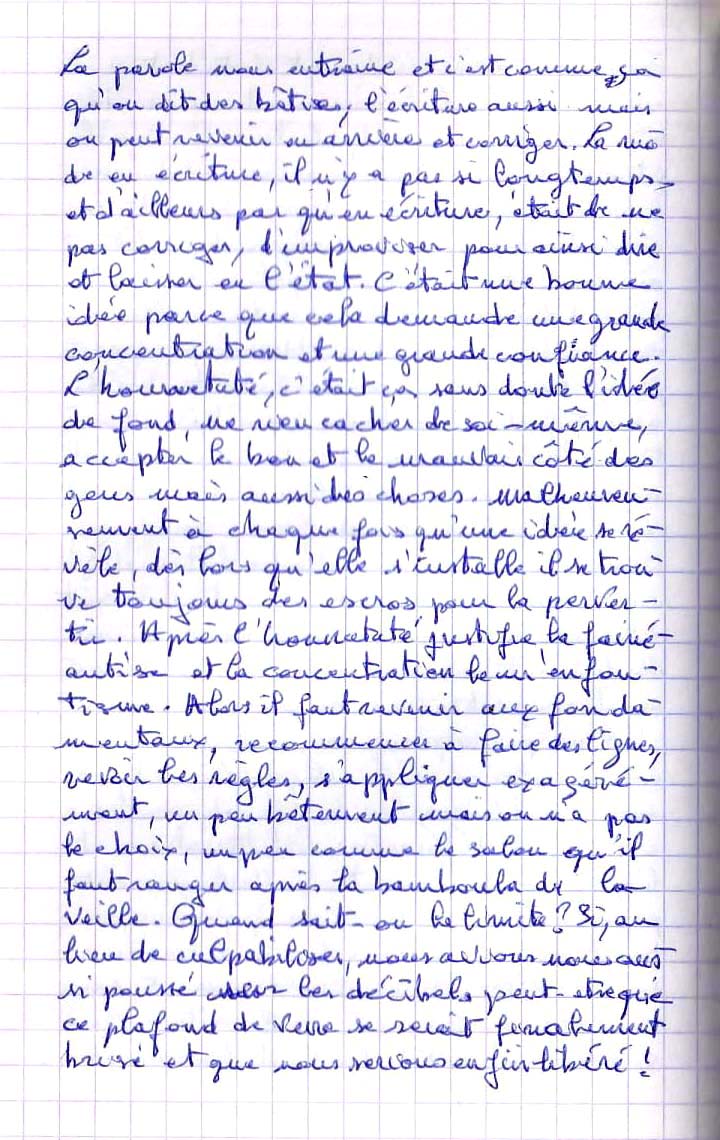 La parole nous entraîne et c'est comme ça
qu'on dit des bêtises, l'écriture aussi mais
on peut revenir en arrière et corriger. La mo
de en écriture, il n'y a pas si longtemps
et d'ailleurs pas qu'en écriture, était de ne
pas corriger, d'improviser pour ainsi dire
et laisser en l'état. C'était une bonne
idée parce que cela demande une grande
concentration et une grande confiance.
L'honnêteté, c'était ça sans doute l'idée
de fond, ne rien cacher de soi-même,
accepter le bon et le mauvais côté des
gens mais aussi des choses. Malheureu-
sement à chaque fois qu'une idée se ré-
vèle, dès lors qu'elle s'installe il se trou
ve toujours des escros pour la perver-
tir. Après l'honnateté justifie la fainé-
antise et la concentration le m'enfou-
tisme. Alors il faut revenir aux fonda-
mentaux, recommencer à faire des lignes,
revoir les règles, s'appliquer exagéré-
ment, un peu bêtement mais on n'a pas
le choix, un peu comme le salon qu'il
faut ranger après la bamboula de la
veille. Quand sait-on la limite? Si, au
lieu de culpabiliser, nous avions nous aus
si poussé les décibels peut-être que
ce plafond de verre se serait finalement
brisé et que nous serions enfin libéré!